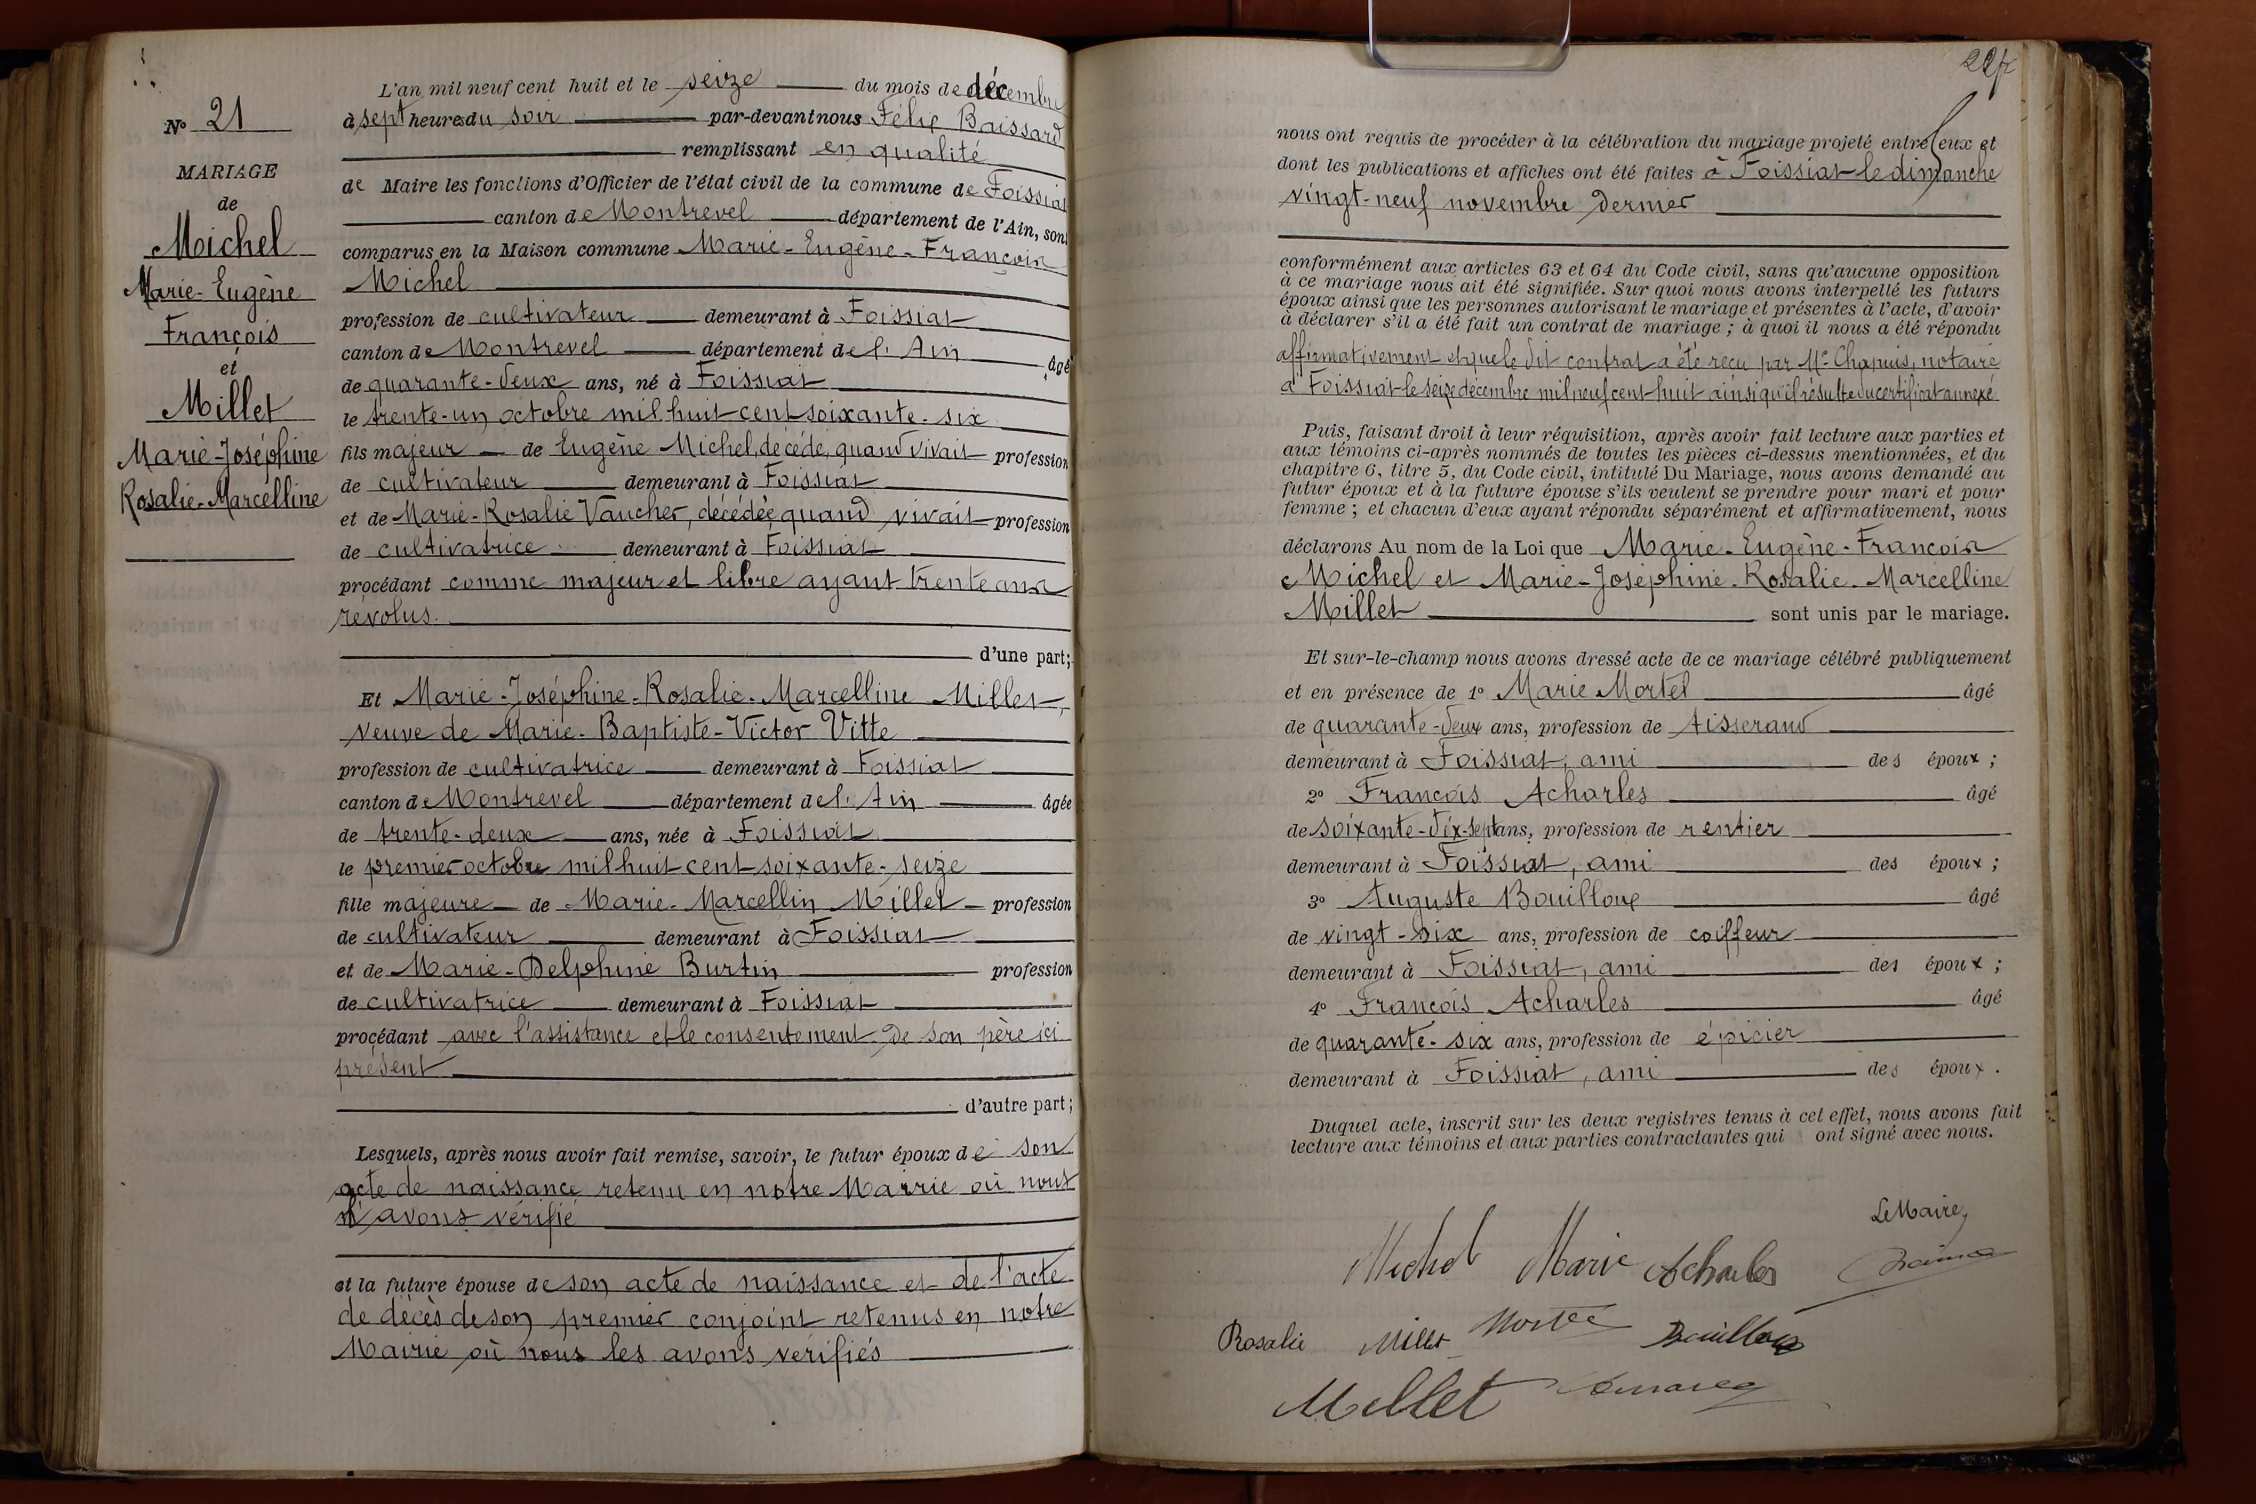 N° 21
MARIAGE
de
Michel
Marie-Eugène
François
et
Millet
Marie-Joséphine
Rosalie-Marcelline
L'an mil neuf cent huit et le seize du mois de décembre
à sept heures du soir par-devant nous Félix Baissard
remplissant en qualité
de Maire les fonctions d'Officier de l'état civil de la commune de Foissiat
canton de Montrevel département de l'Ain, sont
comparus en la Maison commune Marie-Eugène-François
Michel
profession de cultivateur demeurant à Foissiat
canton de Montrevel département de l'Ain âgé
de quarante-deux ans, né à Foissiat
le trente-un octobre mil huit cent soixante-six
fils majeur de Eugène Michel, décédé, quand vivait profession
de cultivateur demeurant à Foissiat
et de Marie-Rosalie Vaucher, décédée, quand vivait profession
de cultivatrice demeurant à Foissiat
procédant comme majeur et libre ayant trente ans
révolus.
d'une part;
Et Marie-Joséphine-Rosalie-Marcelline Millet,
veuve de Marie-Baptiste-Victor Vitte
profession de cultivatrice demeurant à Foissiat
canton de Montrevel département de l'Ain âgée
de trente-deux ans, née à Foissiat
le premier octobre mil huit cent soixante-seize
fille majeure de Marie-Marcellin Millet profession
de cultivateur demeurant à Foissiat
et de Marie-Delphine Burtin profession
de cultivatrice demeurant à Foissiat
procédant avec l'assistance et le consentement de son père ici
présent
d'autre part;
Lesquels, après nous avoir fait remise, savoir, le futur époux de son
acte de naissance retenu en notre Mairie où nous
l'avons vérifié
et la future épouse de son acte de naissance et de l'acte
de décès de son premier conjoint retenus en notre
Mairie où nous les avons vérifiés
nous ont requis de procéder à la célébration du mariage projeté entre eux et
dont les publications et affiches ont été faites à Foissiat le dimanche
vingt-neuf novembre dernier
conformément aux articles 63 et 64 du Code civil, sans qu'aucune opposition
à ce mariage nous ait été signifiée. Sur quoi nous avons interpellé les futurs
époux ainsi que les personnes autorisant le mariage et présentes à l'acte, d'avoir
à déclarer s'il a été fait un contrat de mariage ; à quoi il nous a été répondu
affirmativement et que le dit contrat a été reçu par Me Chapuis, notaire
à Foissiat le seize décembre mil neuf cent huit ainsi qu'il résulte du certificat annexé.
Puis, faisant droit à leur réquisition, après avoir fait lecture aux parties et
aux témoins ci-après nommés de toutes les pièces ci-dessus mentionnées, et du
chapitre 6, titre 5, du Code civil, intitulé Du Mariage, nous avons demandé au
futur époux et à la future épouse s'ils veulent se prendre pour mari et pour
femme ; et chacun d'eux ayant répondu séparément et affirmativement, nous
déclarons Au nom de la Loi que Marie-Eugène-François
Michel et Marie-Joséphine-Rosalie-Marcelline
Millet sont unis par le mariage.
Et sur-le-champ nous avons dressé acte de ce mariage célébré publiquement
et en présence de 1° Marie Mortel âgé
de quarante-deux ans, profession de tisserand
demeurant à Foissiat, ami des époux ;
2° François Acharles âgé
de soixante-dix-sept ans, profession de rentier
demeurant à Foissiat, ami des époux ;
3° Auguste Bouilloux âgé
de vingt-six ans, profession de coiffeur
demeurant à Foissiat, ami des époux ;
4° François Acharles âgé
de quarante-six ans, profession de épicier
demeurant à Foissiat, ami des époux.
Duquel acte, inscrit sur les deux registres tenus à cet effet, nous avons fait
lecture aux témoins et aux parties contractantes qui ont signé avec nous.
Le Maire,
Michel Marie Acharles
Rosalie Millet Bouilloux
Millet